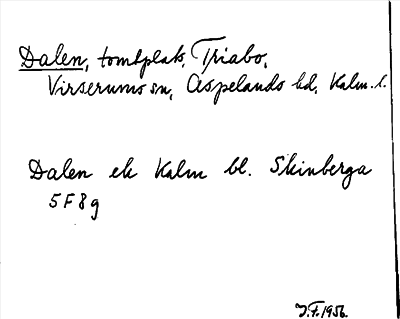 Dalen, tomtplats, Triabo,
Virserums sn, Aspelands hd, Kalm. l.
Dalen ek Kalm bl. Skinberga
5F8g
J.F. 1956.